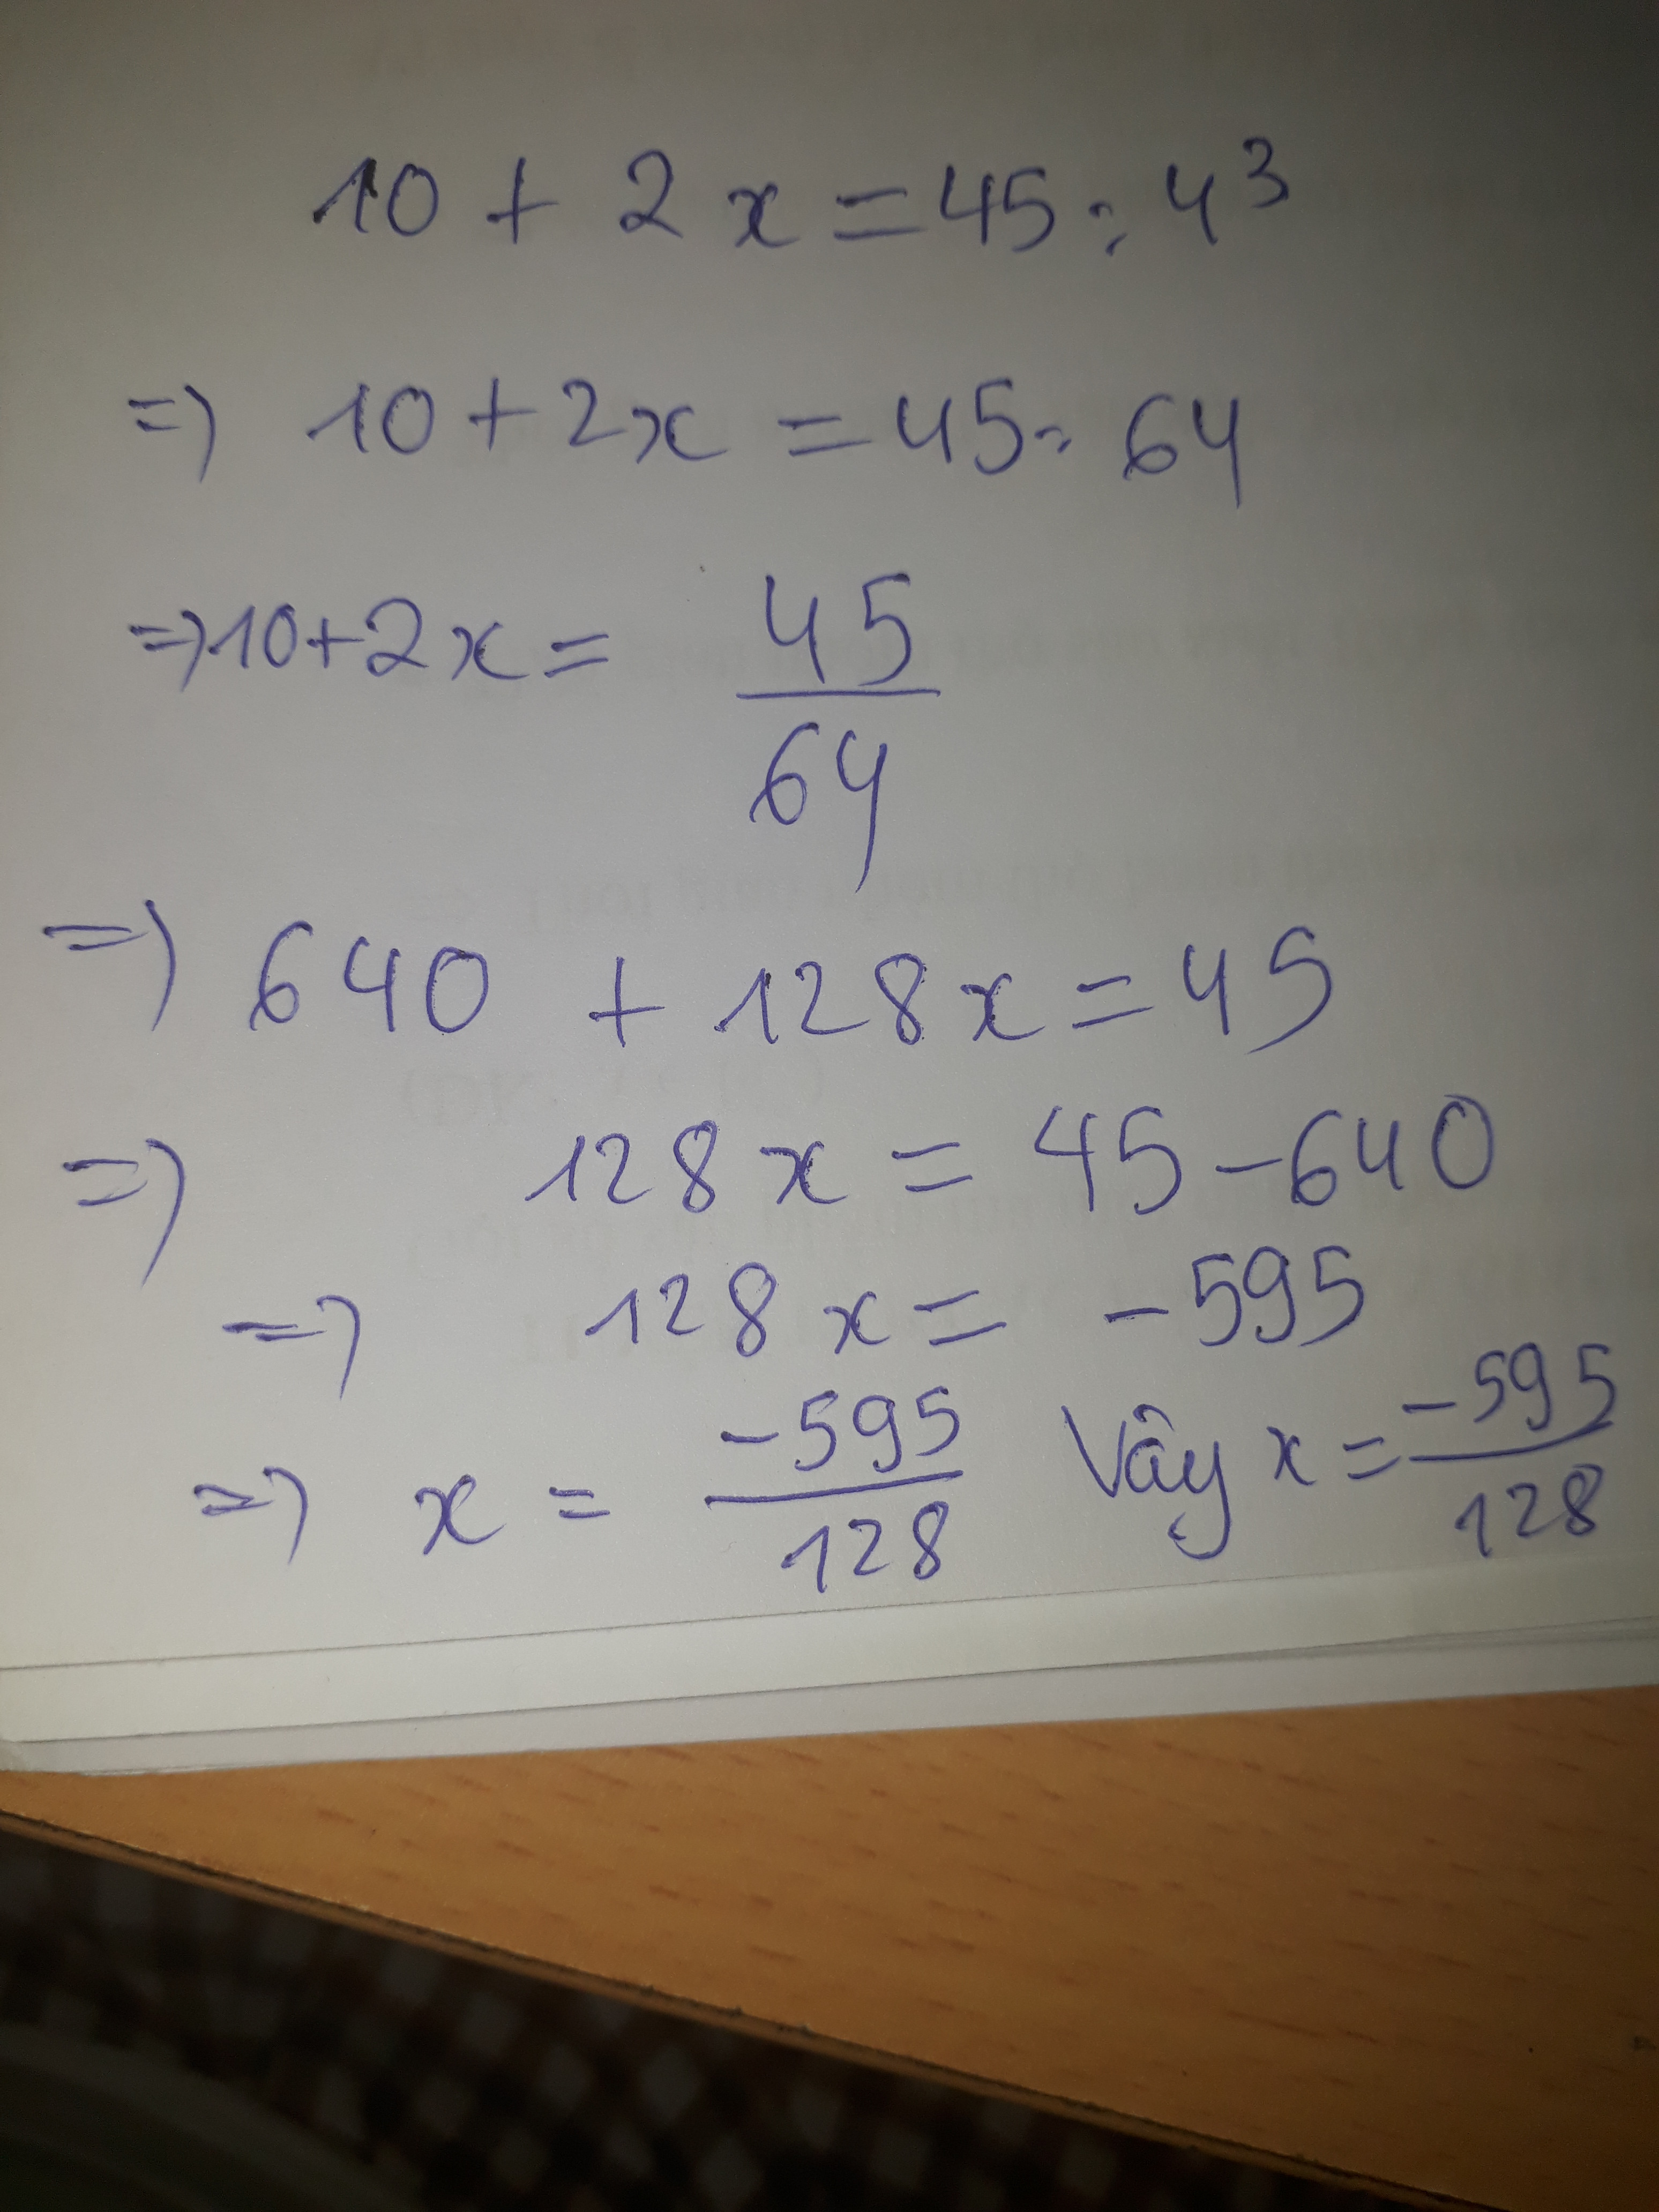 10 + 2x = 45 : 4³
=> 10 + 2x = 45 : 64
=> 10 + 2x = 45/64
=> 640 + 128x = 45
=> 128x = 45 - 640
=> 128x = -595
=> x = -595/128 Vây x = -595/128